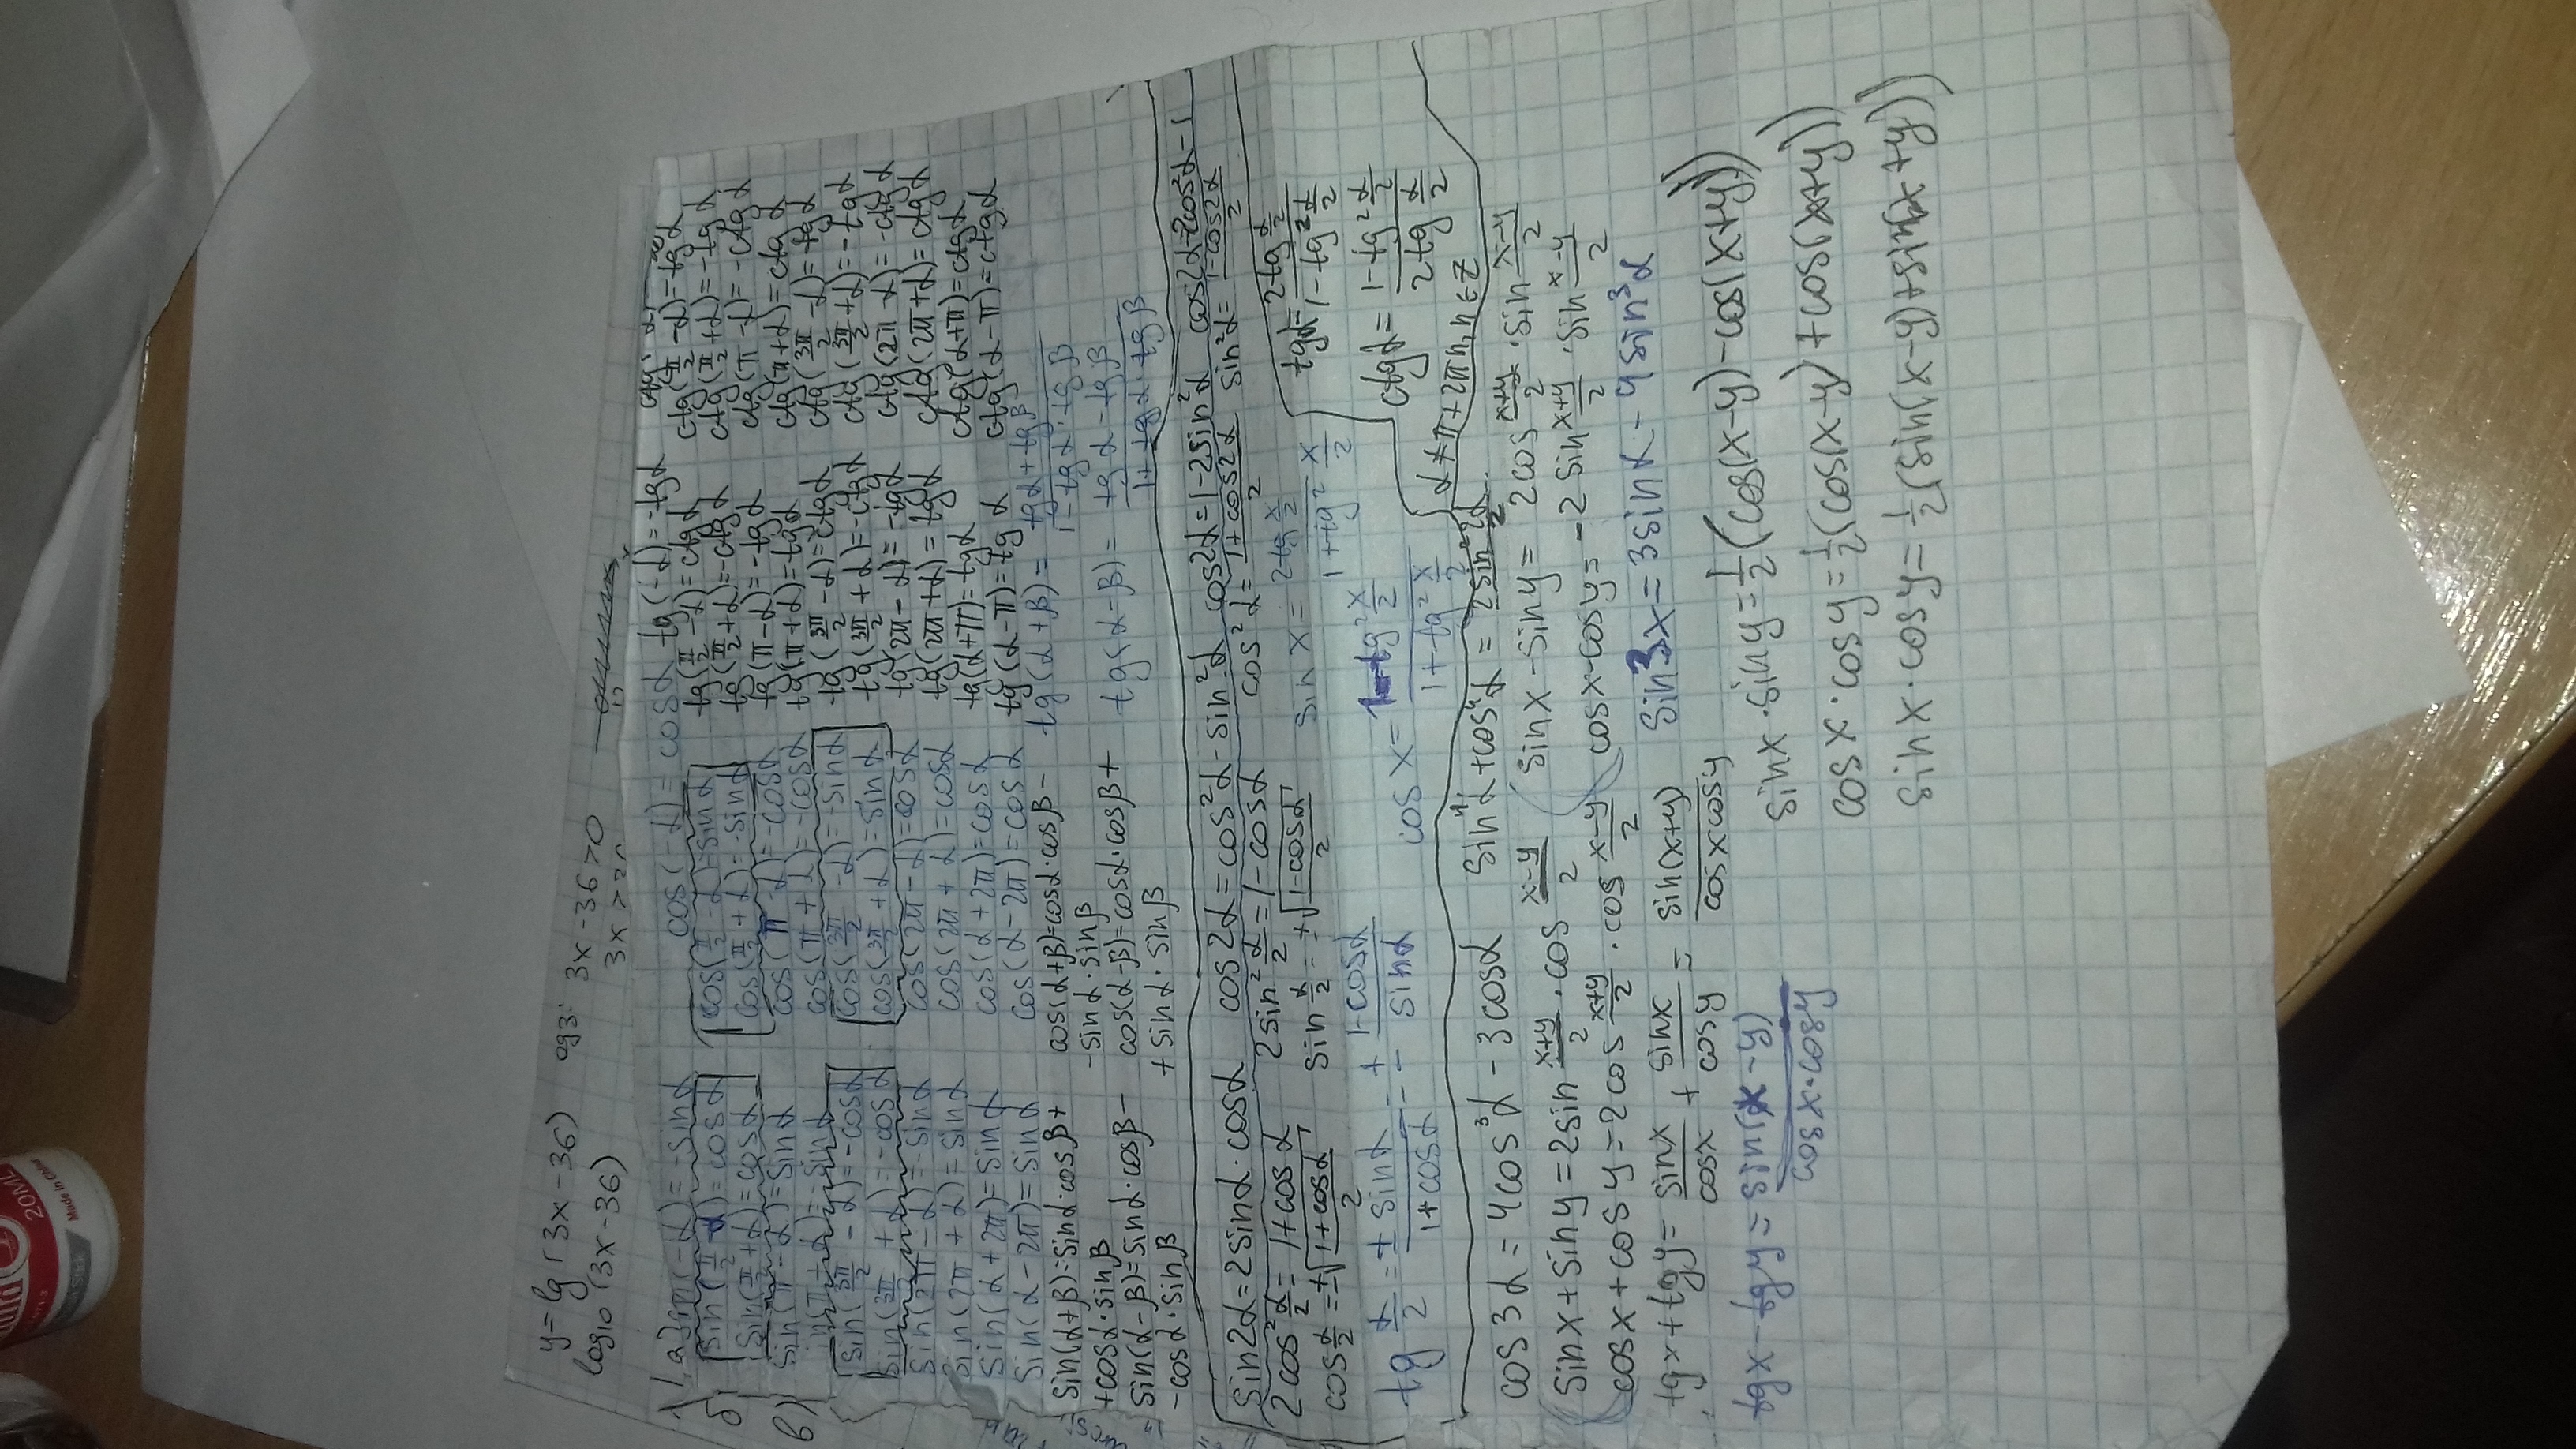 y=lg(3x-36) одз: 3x-36>0
log₁₀(3x-36) 3x>
cos(-α)=cosα tg(-α)=-tgα
sin(π/2-α)=cosα cos(π/2-α)=sinα tg(π/2-α)=ctgα ctg(π/2-α)=tgα
sin(π/2+α)=cosα cos(π/2+α)=-sinα tg(π/2+α)=-ctgα ctg(π/2+α)=-tgα
sin(π-α)=sinα cos(π-α)=-cosα tg(π-α)=-tgα ctg(π-α)=-ctgα
cos(π+α)=-cosα tg(π+α)=tgα ctg(π+α)=ctgα
sin(3π/2-α)=-cosα cos(3π/2-α)=-sinα tg(3π/2-α)=ctgα ctg(3π/2-α)=tgα
sin(3π/2+α)=-cosα cos(3π/2+α)=sinα tg(3π/2+α)=-ctgα ctg(3π/2+α)=-tgα
sin(2π-α)=-sinα cos(2π-α)=cosα tg(2π-α)=-tgα ctg(2π-α)=-ctgα
sin(2π+α)=sinα cos(2π+α)=cosα tg(2π+α)=tgα ctg(2π+α)=ctgα
sin(α+2π)=sinα cos(α+2π)=cosα tg(α+π)=tgα ctg(α+π)=ctgα
sin(α-2π)=sinα cos(α-2π)=cosα tg(α-π)=tgα ctg(α-π)=ctgα
sin(α+β)=sinα·cosβ+ cos(α+β)=cosα·cosβ- tg(α+β)=(tgα+tgβ)/(1-tgα·tgβ)
+cosα·sinβ -sinα·sinβ
sin(α-β)=sinα·cosβ- cos(α-β)=cosα·cosβ+ tg(α-β)=(tgα-tgβ)/(1+tgα·tgβ)
-cosα·sinβ +sinα·sinβ
sin2α=2sinα·cosα cos2α=cos²α-sin²α cos2α=1-2sin²α cos2α=2cos²α-1
2cos²α/2=1+cosα 2sin²α/2=1-cosα cos²α=(1+cos2α)/2 sin²α=(1-cos2α)/2
cosα/2=±√(1+cosα)/2 sinα/2=±√(1-cosα)/2 sinx=(2tg x/2)/(1+tg² x/2) tgα=(2tg α/2)/(1-tg² α/2)
tg α/2=± sinα/(1+cosα)=± (1-cosα)/sinα cosx=(1-tg² x/2)/(1+tg² x/2) ctgα=(1-tg² α/2)/(2tg α/2)
α≠π+2πn, n∈Z
cos3α=4cos³α-3cosα sin⁴α+cos⁴α=
sinx+siny=2sin (x+y)/2·cos (x-y)/2 sinx-siny=2cos (x+y)/2·sin (x-y)/2
cosx+cosy=2cos (x+y)/2·cos (x-y)/2 cosx-cosy=-2sin (x+y)/2·sin (x-y)/2
tgx+tgy=sinx/cosx+sinx/cosy=sin(x+y)/cosxcosy sin3x=3sinα-4sin³α
tgx-tgy=sin(x-y)/cosx·cosy sinx·siny=1/2(cos(x-y)-cos(x+y))
cosx·cosy=1/2(cos(x-y)+cos(x+y))
sinx·cosy=1/2(sin(x-y)+sin(x+y))
20ML
Made in China